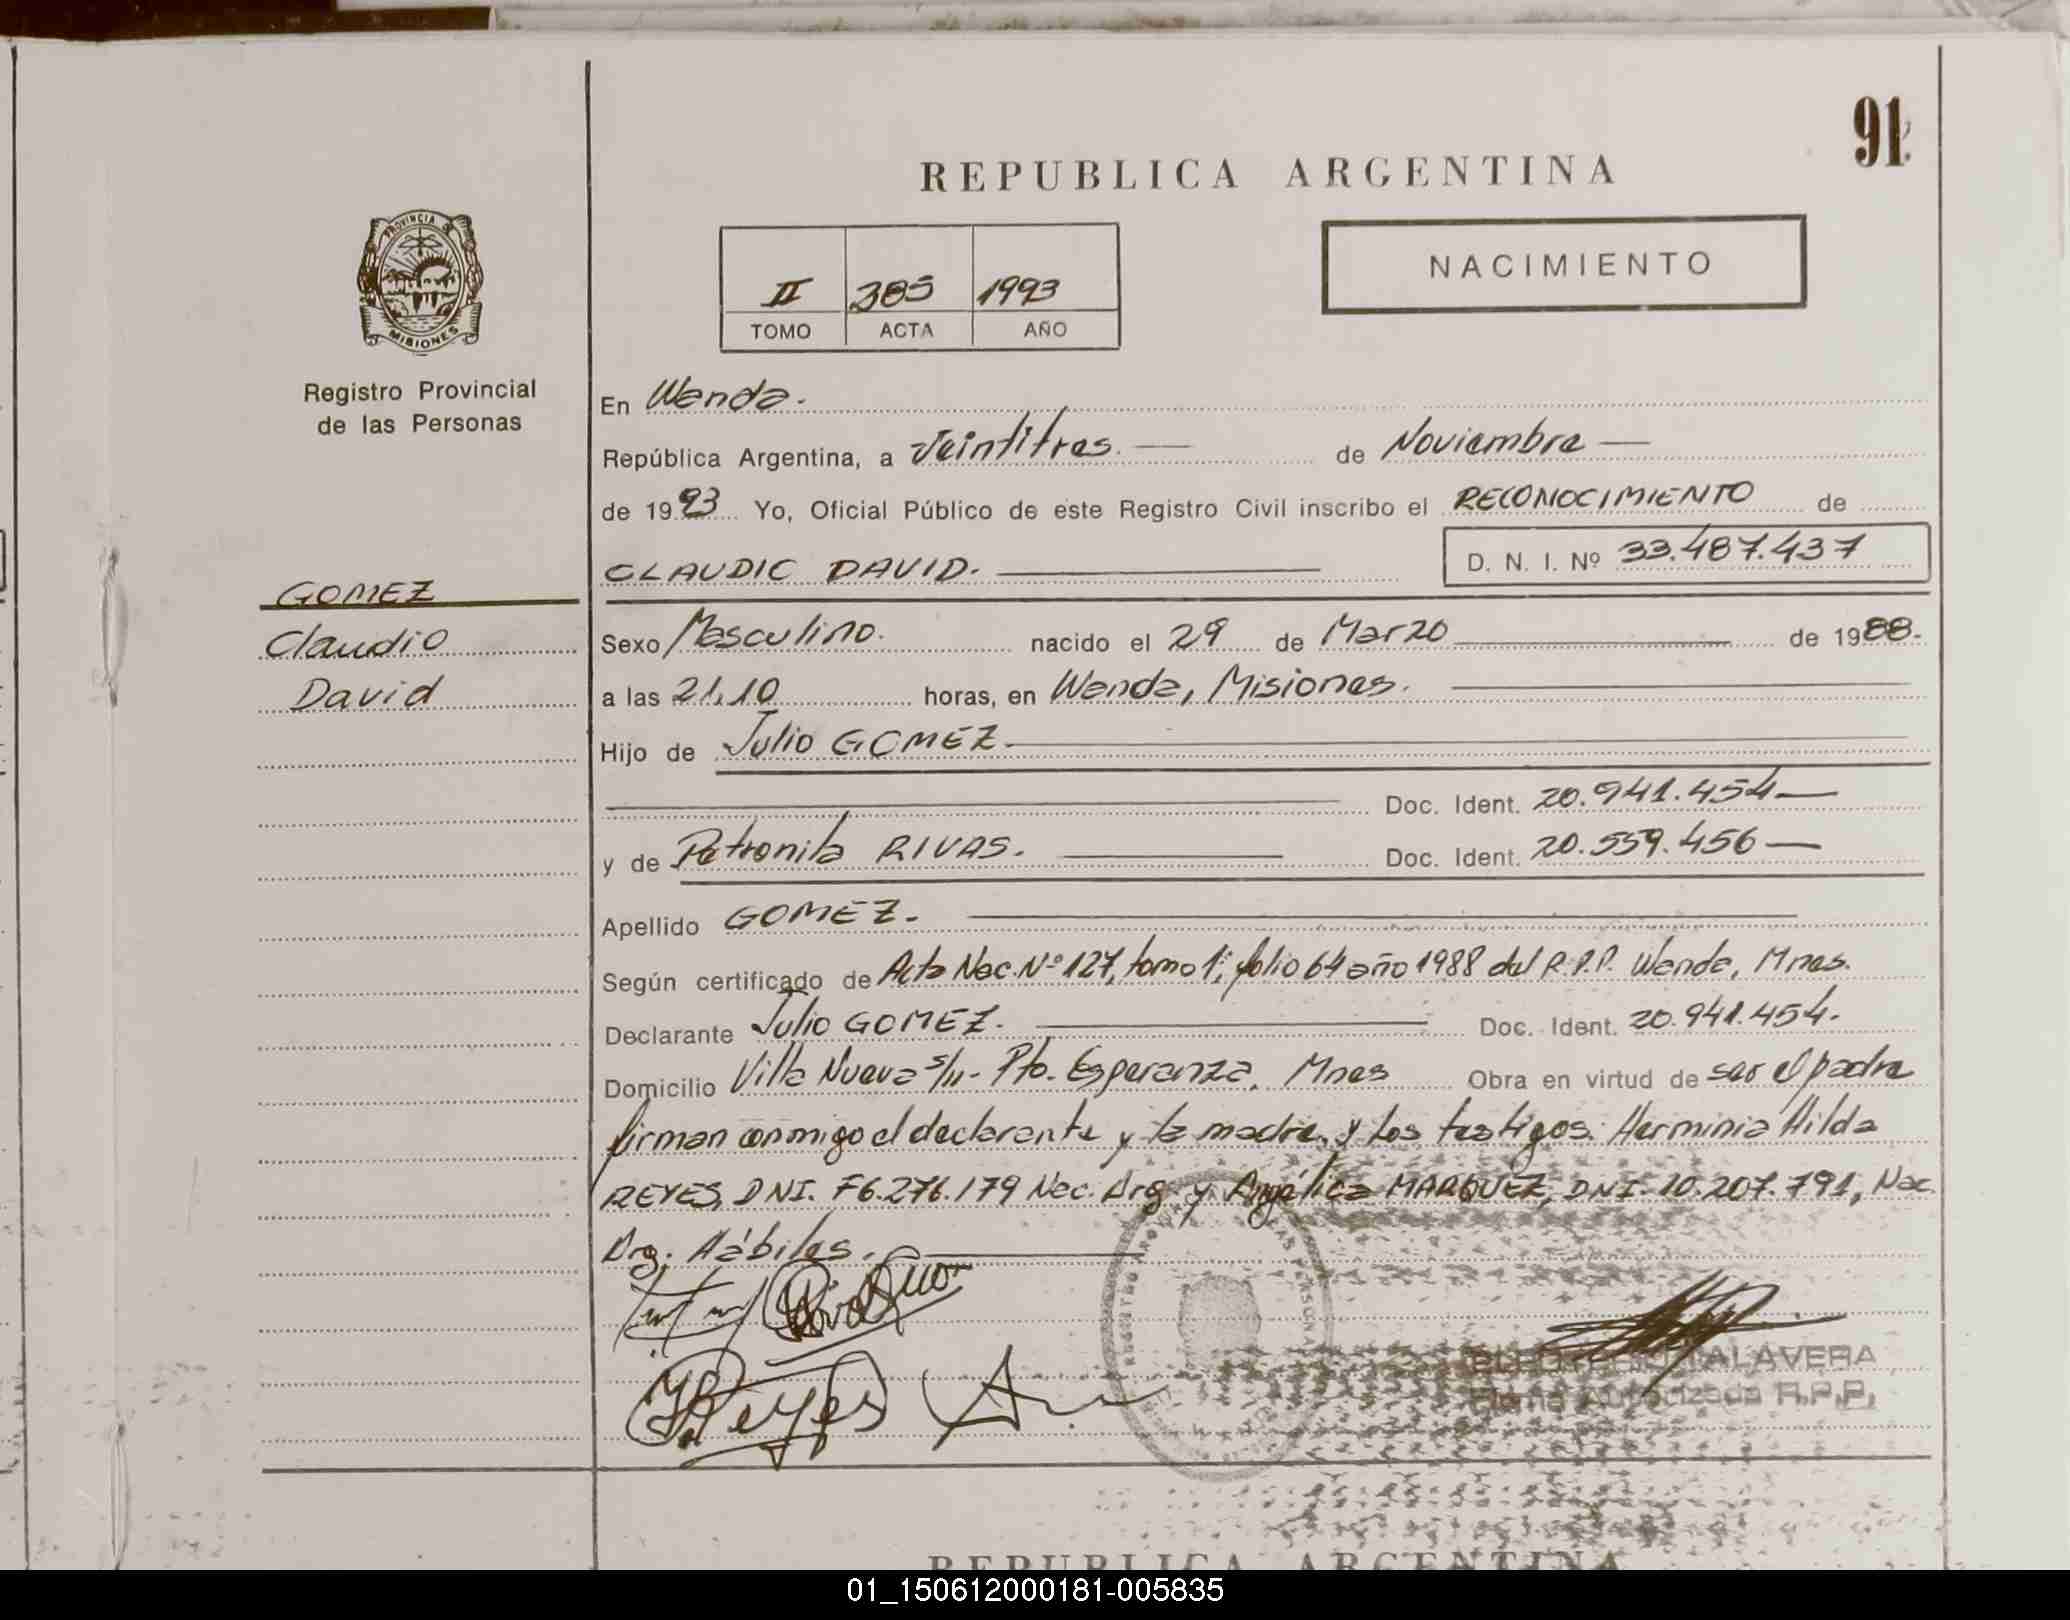 91
REPUBLICA ARGENTINA
PROVINCIA DE
MISIONES
Registro Provincial
de las Personas
II 385 1993
TOMO ACTA AÑO
NACIMIENTO
En Wanda.
República Argentina, a Veintitres. — de Noviembre —
de 1993 Yo, Oficial Público de este Registro Civil inscribo el RECONOCIMIENTO de
CLAUDIO DAVID. D. N. I. Nº 33.487.437
GOMEZ
Claudio
David
Sexo Masculino. nacido el 29 de Marzo de 1988.
a las 21,10 horas, en Wanda, Misiones.
Hijo de Julio GOMEZ.
Doc. Ident. 20.941.454—
y de Petronila RIVAS. Doc. Ident. 20.559.456—
Apellido GOMEZ.
Según certificado de Acta Nac. Nº 127, tomo 1, folio 64 año 1988 del R.P.P. Wanda, Mnes.
Declarante Julio GOMEZ. Doc. Ident. 20.941.454.
Domicilio Villa Nueva s/n- Pto. Esperanza, Mnes Obra en virtud de ser el padre
firman conmigo el declarante y la madre, y los testigos: Herminia Hilda
REYES, DNI. F6.276.179 Nac. Arg. y Angélica MARQUEZ, DNI. 10.207.791, Nac.
Arg. Hábiles.
HReyes
TALAVERA
Firma Autorizada R.P.P.
REPUBLICA ARGENTINA
01_150612000181-005835